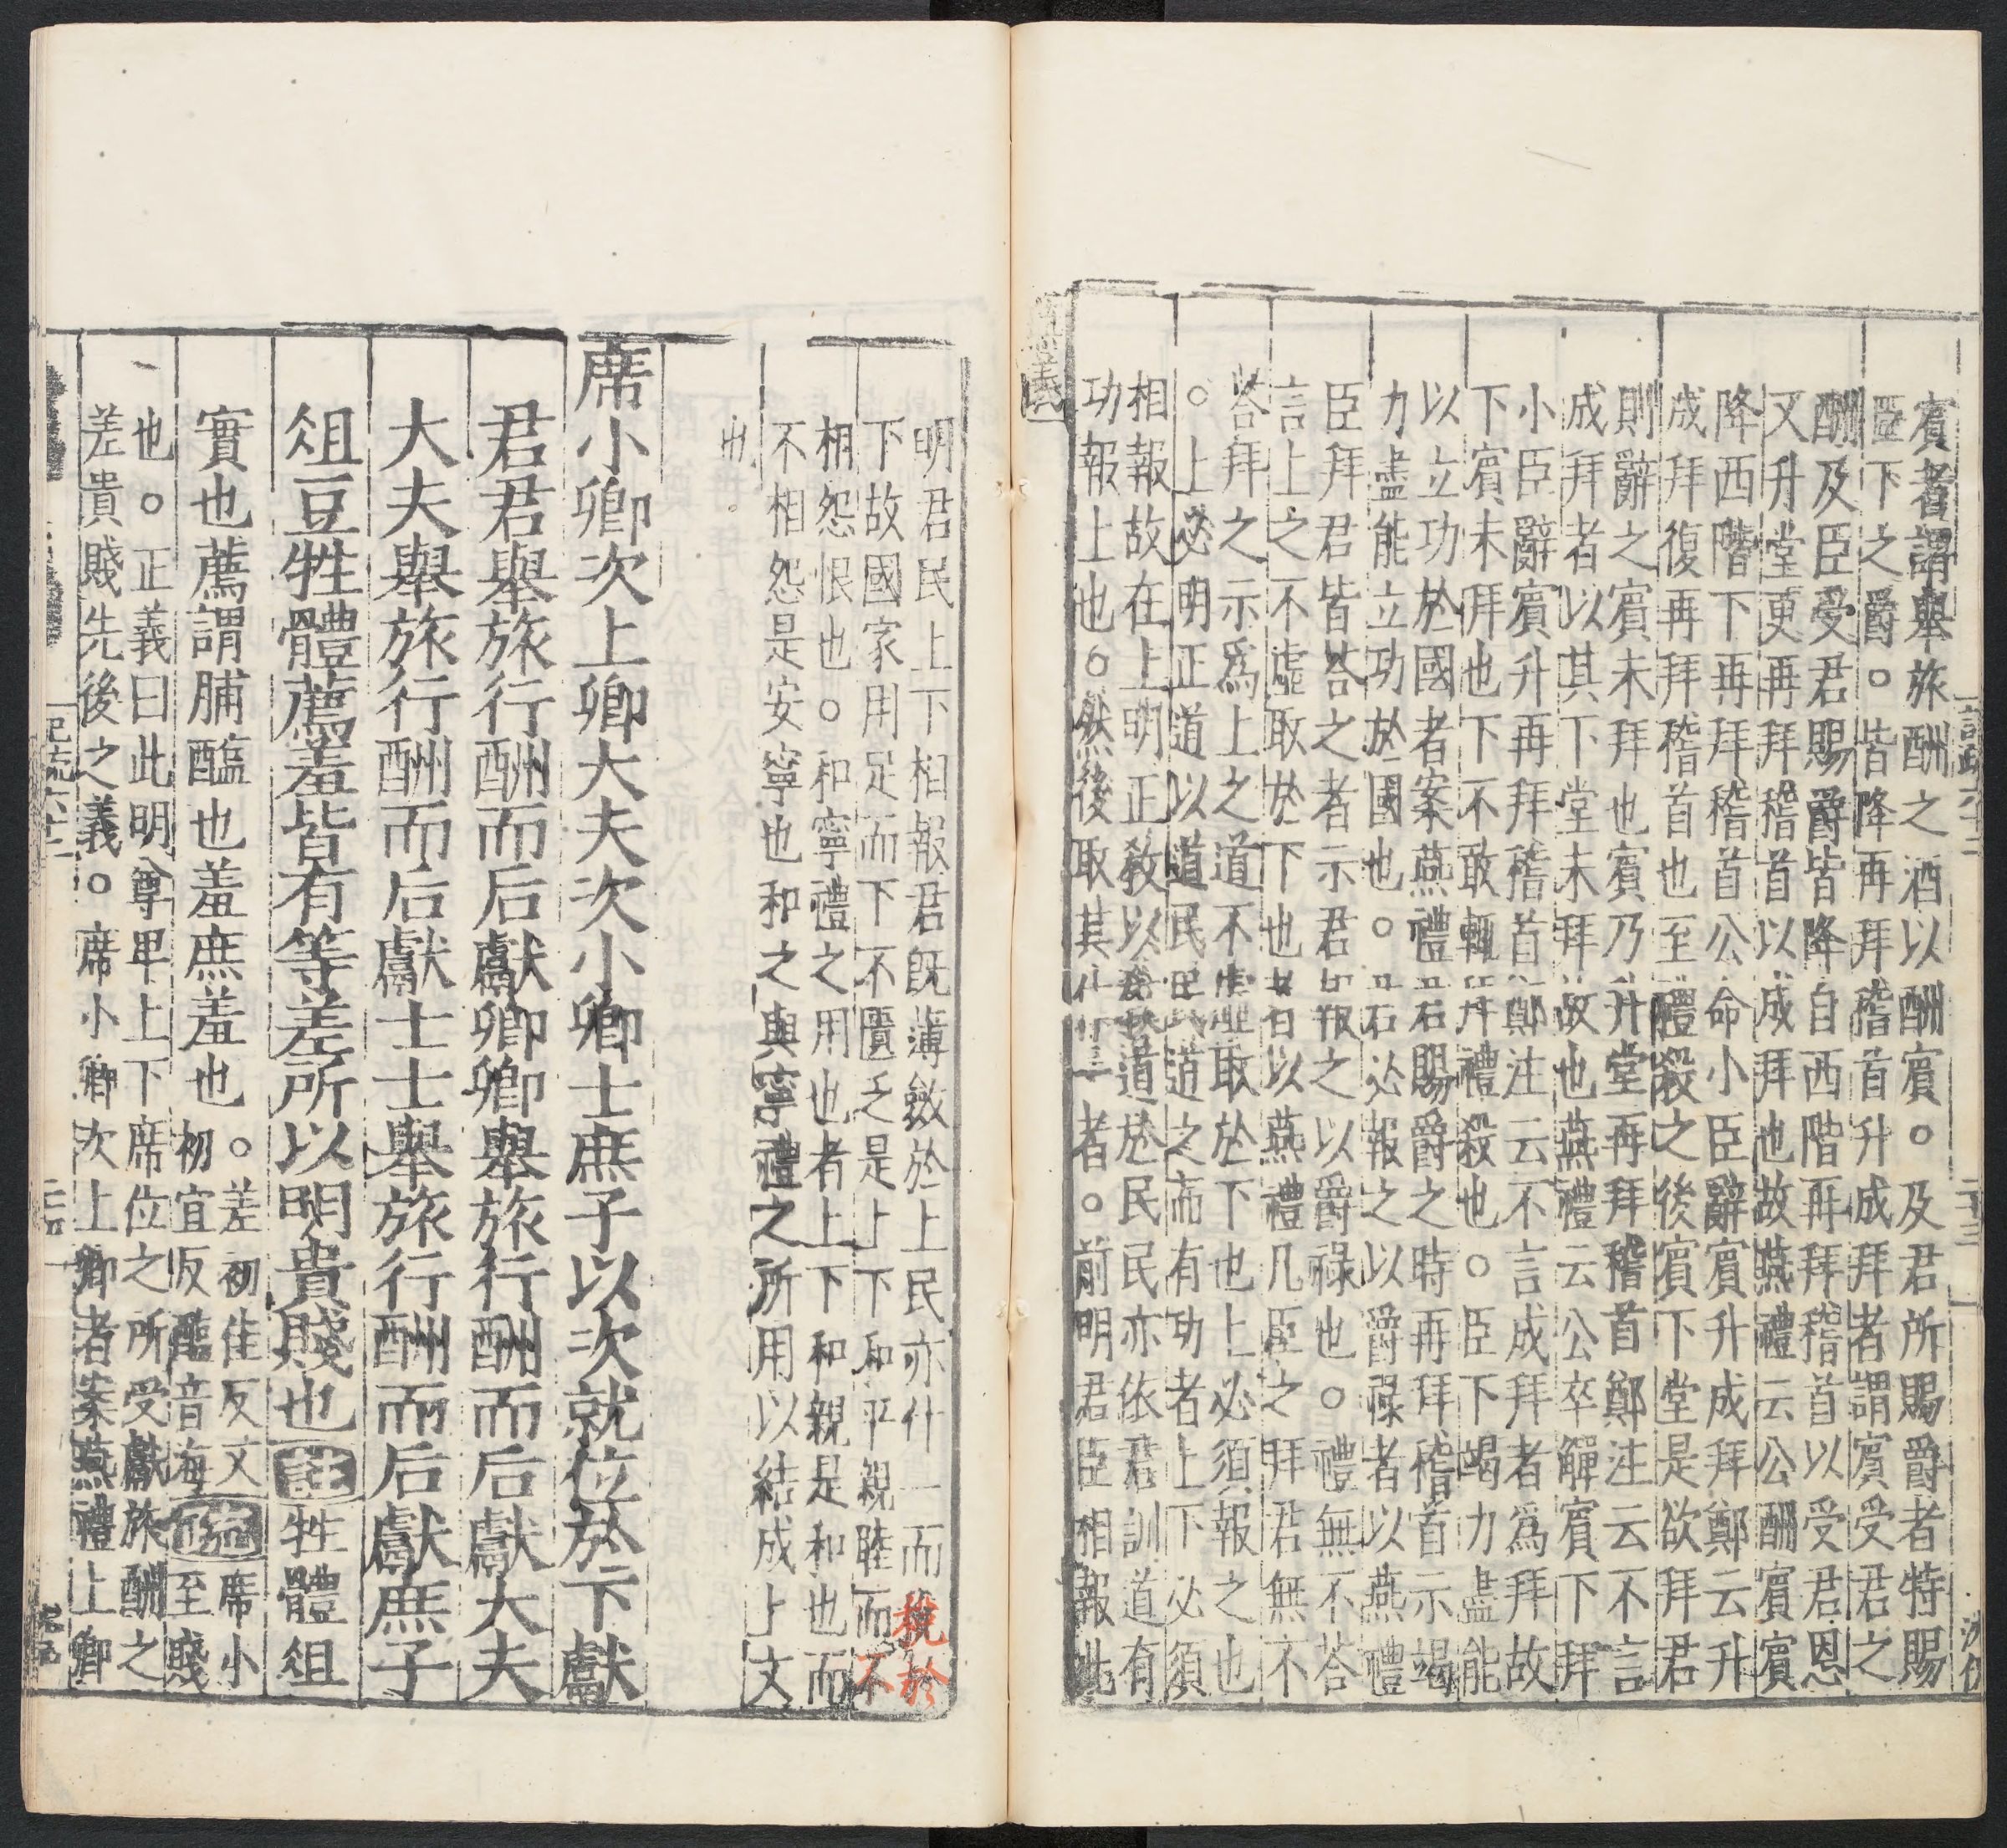 賓者謂舉旅酬之酒以酬賓。及君所賜爵者特賜
臣下之爵。皆降再拜稽首升成拜者謂賓受君之
酬及臣受君賜爵皆降自西階再拜稽首以受君恩
又升堂更再拜稽首以成拜也故燕禮云公酬賓賓
降西階下再拜稽首公命小臣辭賓升成拜鄭云升
成拜復再拜稽首也至禮殺之後賓下堂是欲拜君
則辭之賓未拜也賓乃升堂再拜稽首鄭注云不言
成拜者以其下堂未拜故也燕禮云公卒觶賓下拜
小臣辭賓升再拜稽首鄭注云不言成拜者為拜故
下賓未拜也下不敢輒拜禮殺也。臣下竭力盡能
以立功於國者案燕禮君賜爵之時再拜稽首示竭
力盡能立功於國也。君必報之以爵祿者以燕禮
臣拜君皆荅之者示君報之以爵祿也。禮無不荅
言上之不虛取於下也者以燕禮凡臣之拜君無不
荅拜之示為上之道不虛取於下也上必須報之也
。上必明正道以道民民道之而有功者上下必須
相報故在上明正教以教道於民民亦依君訓道有
功報上也。然後取其什一者。前明君臣相報此
明君民上下相報君旣薄斂於上民亦什一而稅於
下故國家用足而下不匱乏是上下和平親睦而不
相怨恨也。和寧禮之用也者上下和親是和也而
不相怨是安寧也和之與寧禮之所用以結成上文
也。
席小卿次上卿大夫次小卿士庶子以次就位於下獻
君君舉旅行酬而后獻卿卿舉旅行酬而后獻大夫
大夫舉旅行酬而后獻士士舉旅行酬而后獻庶子
俎豆牲體薦羞皆有等差所以明貴賤也 註 牲體俎
實也薦謂脯醢也羞庶羞也 。差初佳反文
初宜反醢音海 疏 席小
至賤
也。正義曰此明尊卑上下席位之所受獻旅酬之
差貴賤先後之義。席小卿次上卿者案燕禮上卿